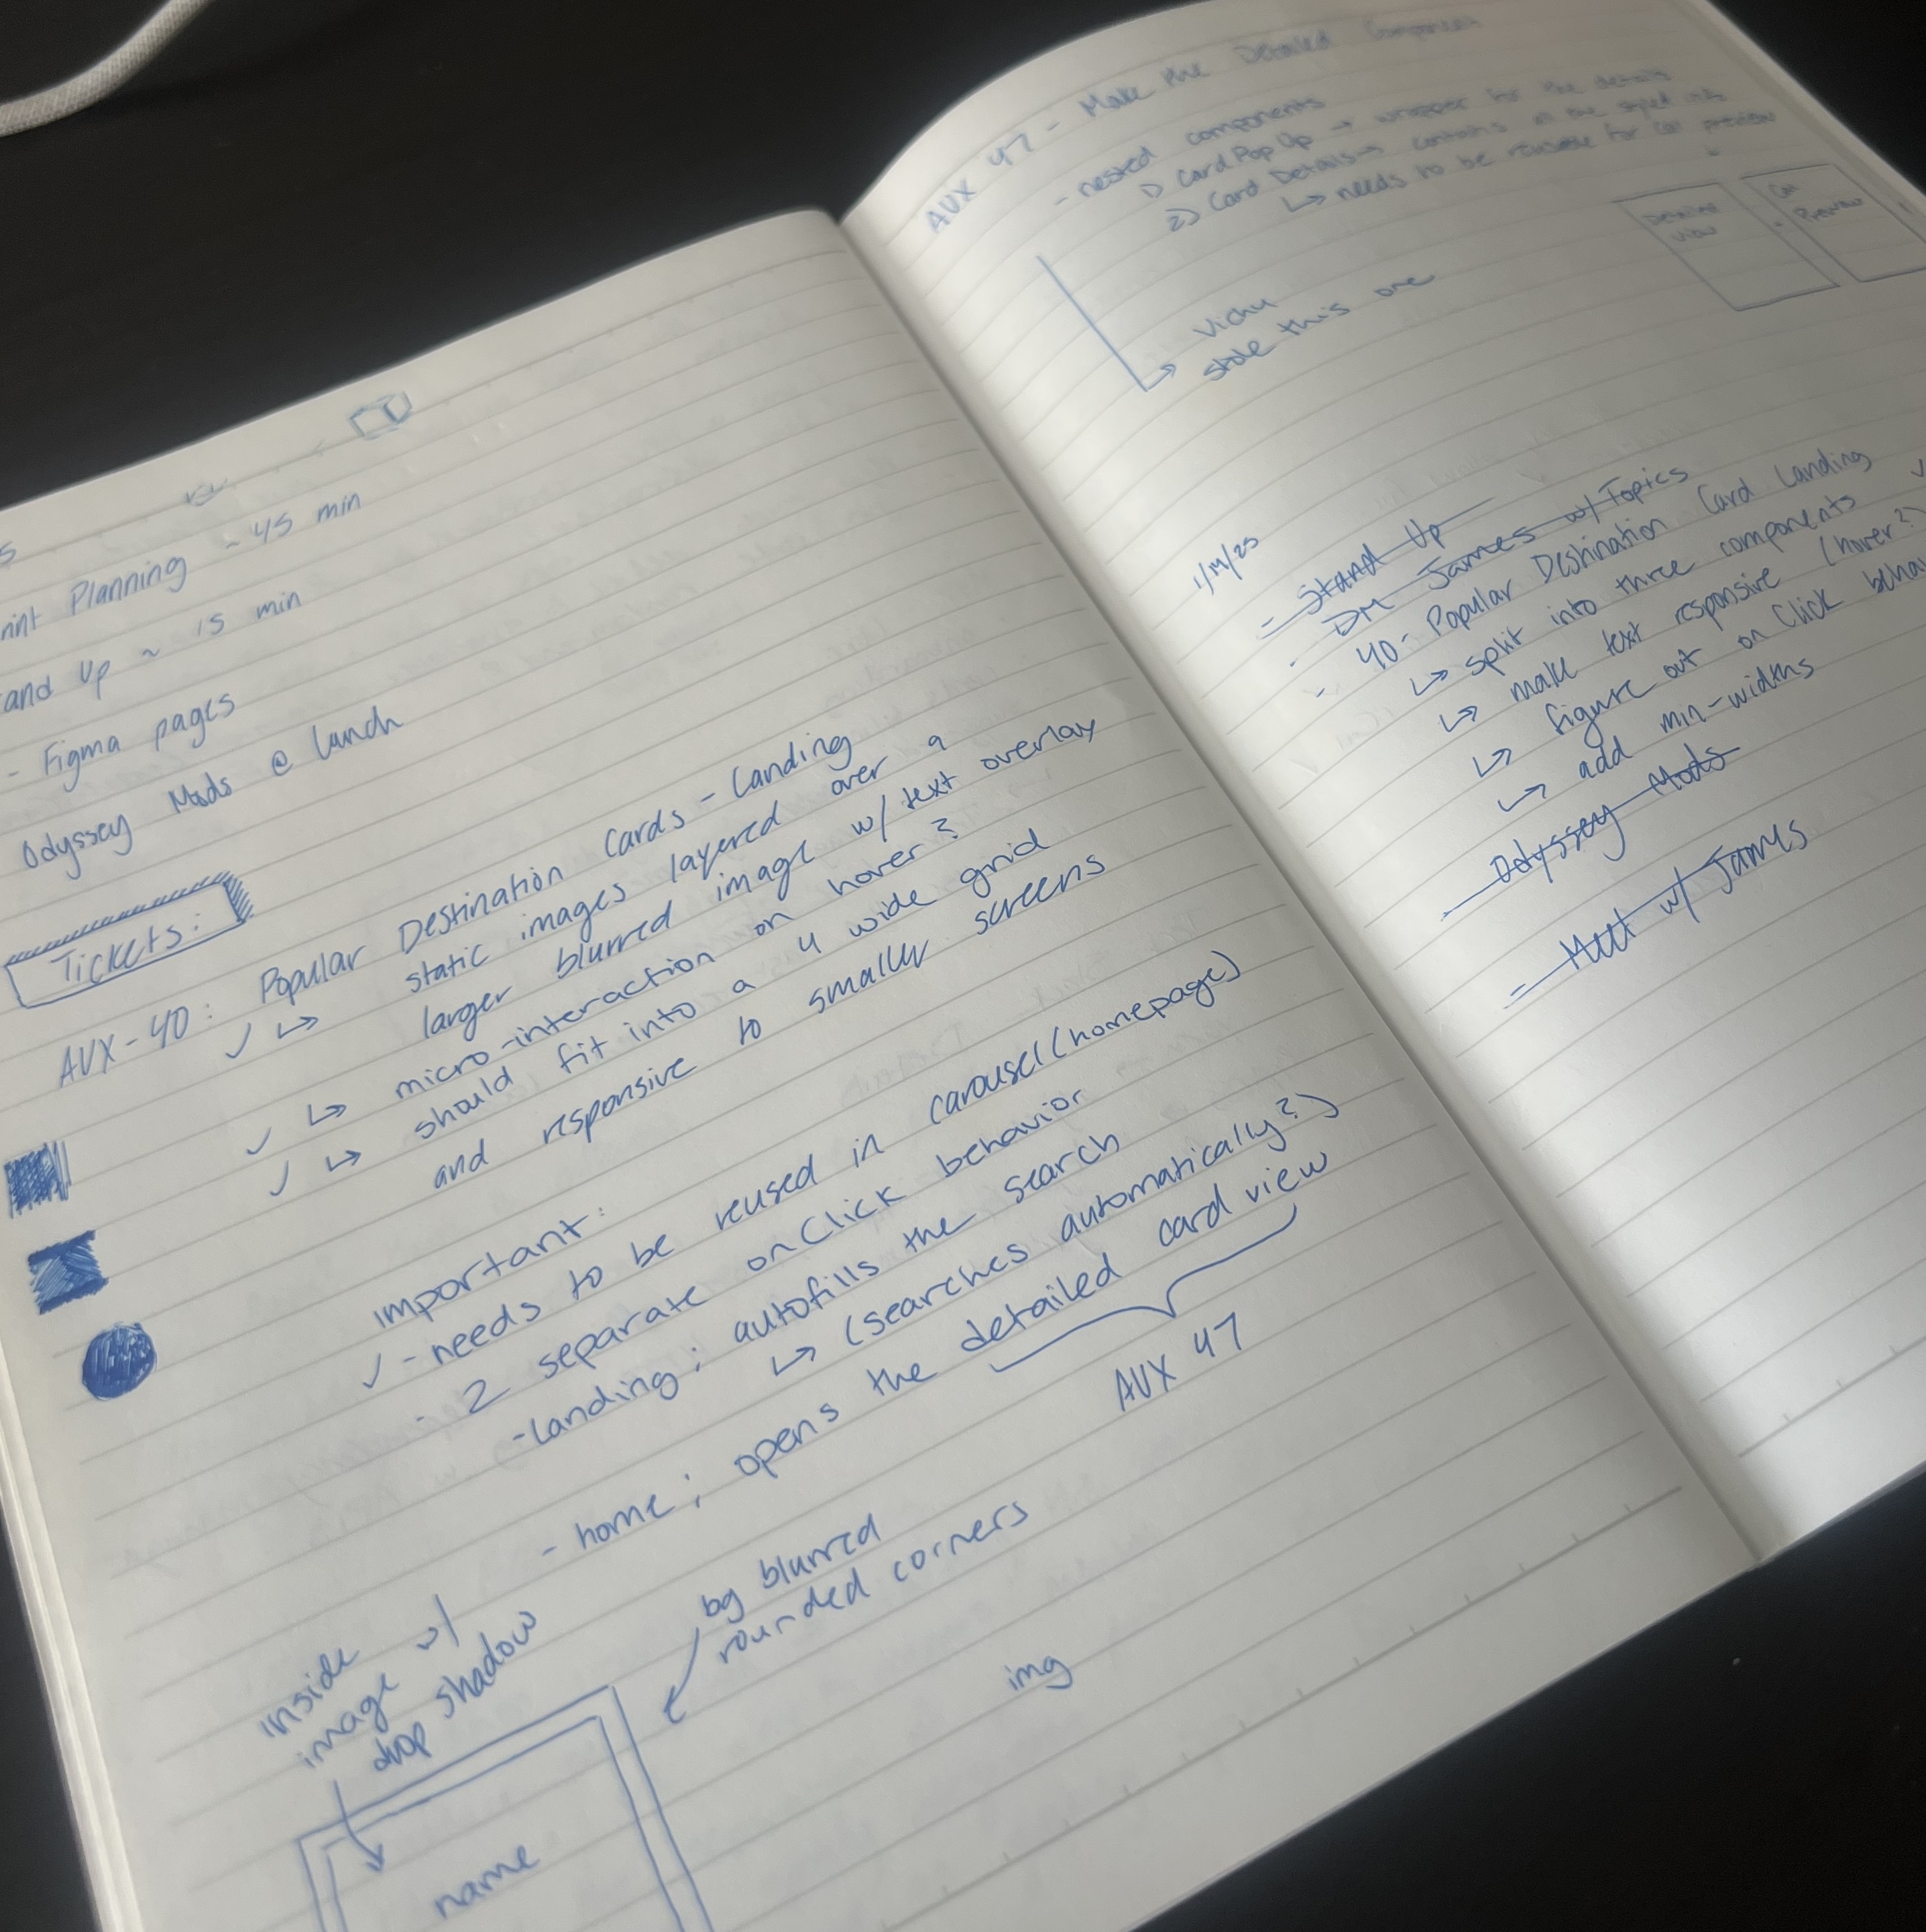 Planning ~ 45 min
and Up ~ 15 min
- Figma pages
Odyssey Mods @ lunch
Tickets:
AUX-40: Popular Destination Cards - Landing
✓ ↳ static images layered over a
larger blurred image w/ text overlay
✓ ↳ micro-interaction on hover?
✓ ↳ should fit into a 4 wide grid
and responsive to smaller screens
important:
✓ - needs to be reused in carousel (homepage)
- 2 separate onClick behavior
- Landing; autofills the search
↳ (searches automatically?)
- home; opens the detailed card view
AUX 47
inside
image w/
drop shadow
bg blurred
rounded corners
img
name
AUX 47 - Make the Detailed Component
- nested components
1) Card Pop Up → wrapper for the details
2) Card Details → contains all the styled info
↳ needs to be reusable for preview
Detailed
View
Preview
↳ Vichu
stole this one
- Stand Up
- DM James w/ Topics
- 40 - Popular Destination Card Landing
↳ split into three components ✓
↳ make text responsive (hover?)
↳ figure out on Click
↳ add min-widths
- Odyssey Mods
- Meet w/ James